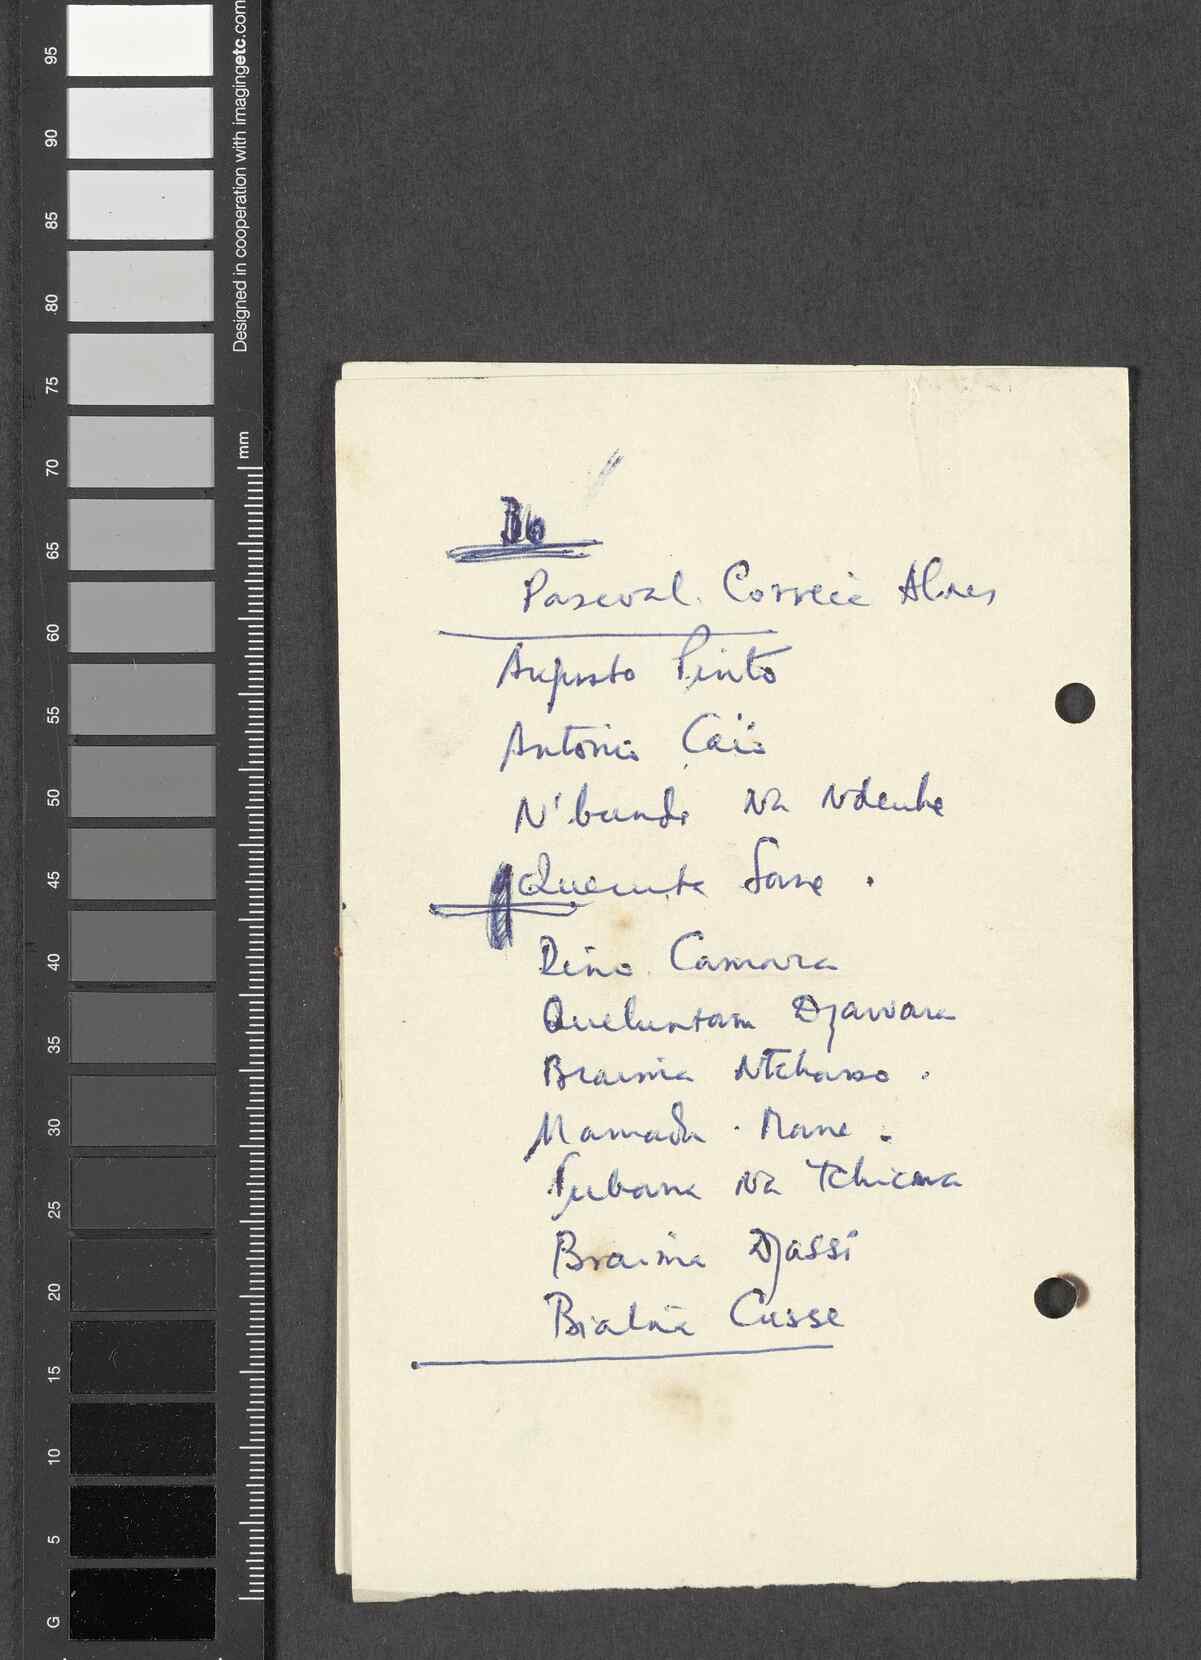 95
90
85
80
75
70
65
60
55
50
45
40
35
30
25
20
15
10
5
G
Designed in cooperation with imagingetc.com
mm
Pascoal Correia Alves
Augusto Pinto
Antonio Caiò
N'bunde Na Ndenhe
Quecuta Sane .
Dino Camara
Queluntam Djawara
Braima Ntchasso .
Mamadu . Mane .
Tubana Na Tchicna
Braima Djassi
Bialna Cusse